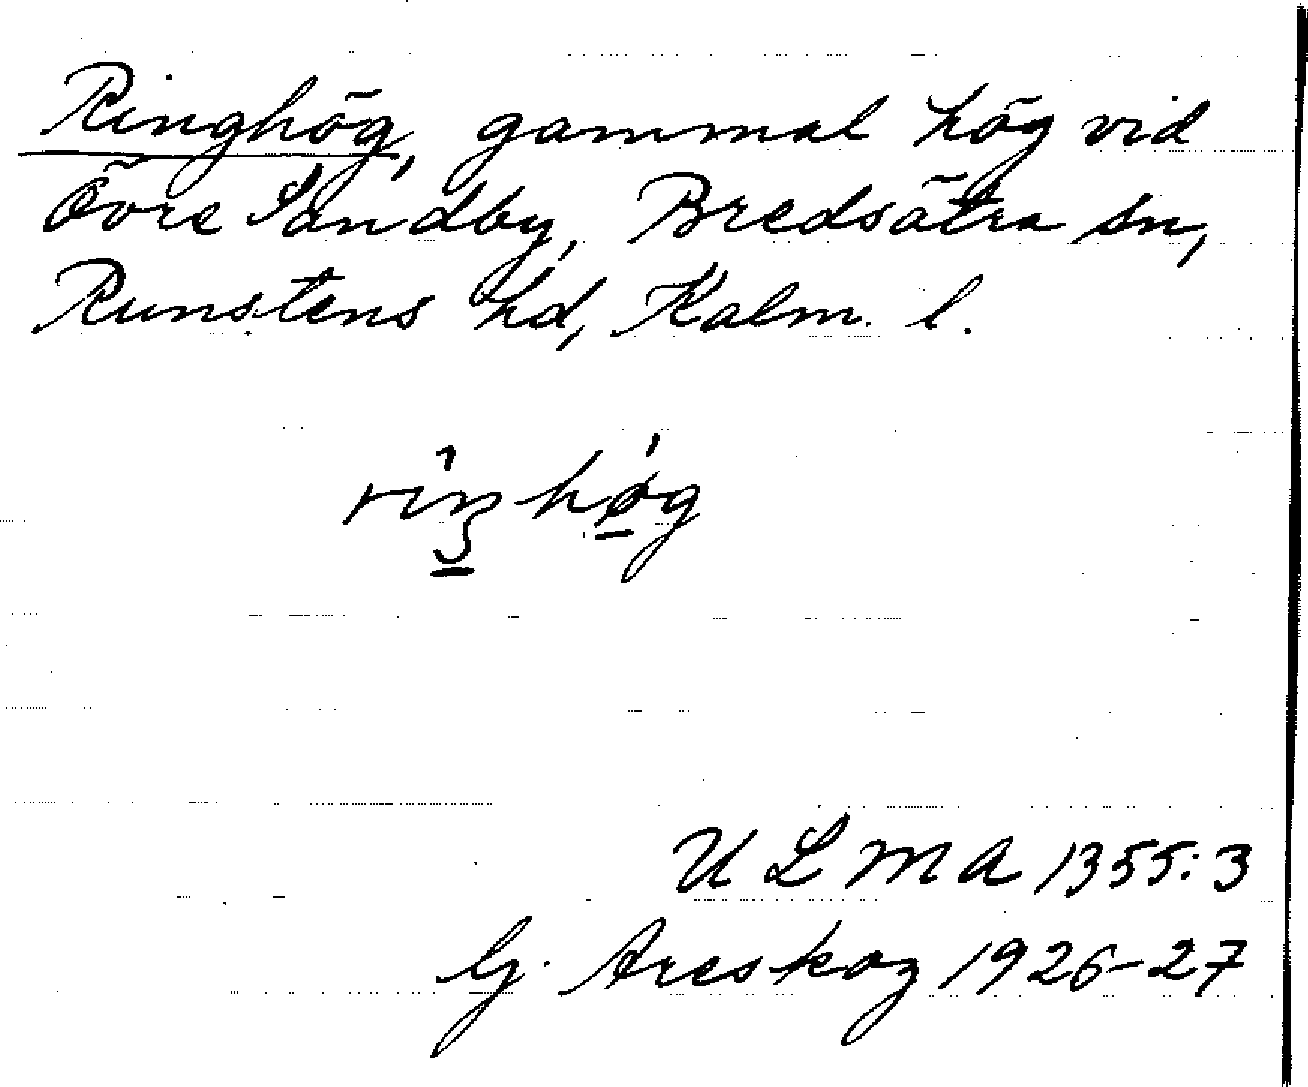 Ringhög, gammal hög vid
Övre Sandby, Bredsätra sn,
Runstens hd, Kalm. l.
riŋhøg
ULMA 1355:3
G. Areskog 1926-27